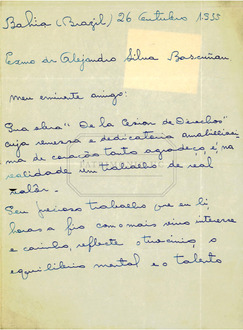 Bahia (Brazil) 26 Outubro 1933
Exmo dr Alejandro Silva Bascuñan
meu eminente amigo:
Sua obra "De la Cesion de Derechos"
cuja remessa e dedicatoria amabilissi-
ma de coração tanto agradeço, é na
realidade um trabalho de real
valôr.
Seu precioso trabalho que eu li
horas a fio com o mais vivo interesse
e carinho, reflecte o tirocinio, o
equilibrio mental e o talento